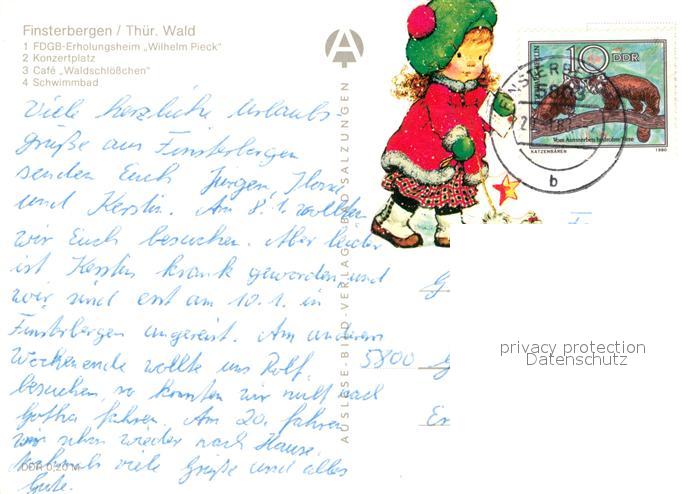 Finsterbergen / Thür. Wald
1 FDGB-Erholungsheim „Wilhelm Pieck"
2 Konzertplatz
3 Café „Waldschlößchen"
4 Schwimmbad
Viele herzliche Urlaubs-
grüße aus Finsterbergen
senden Euch Jürgen,
und Kerstin. Am 8.1. wollten
wir Euch besuchen. Aber leider
ist Kerstin krank geworden und
wir sind erst am 10.1. in
Finsterbergen angereist. Am anderen
Wochenende wollte uns Rolf
besuchen, so konnten wir nicht nach
Gotha fahren. Am 20. fahren
wir schon wieder nach Hause.
Nochmals viele Grüße und alles
Gute.
DDR 0,20 M
AUSLESE-BILD-VERLAG BAD SALZUNGEN
10 DDR
Vom Aussterben bedrohte Tiere
KATZENBÄREN 1980
b
5800
privacy protection
Datenschutz